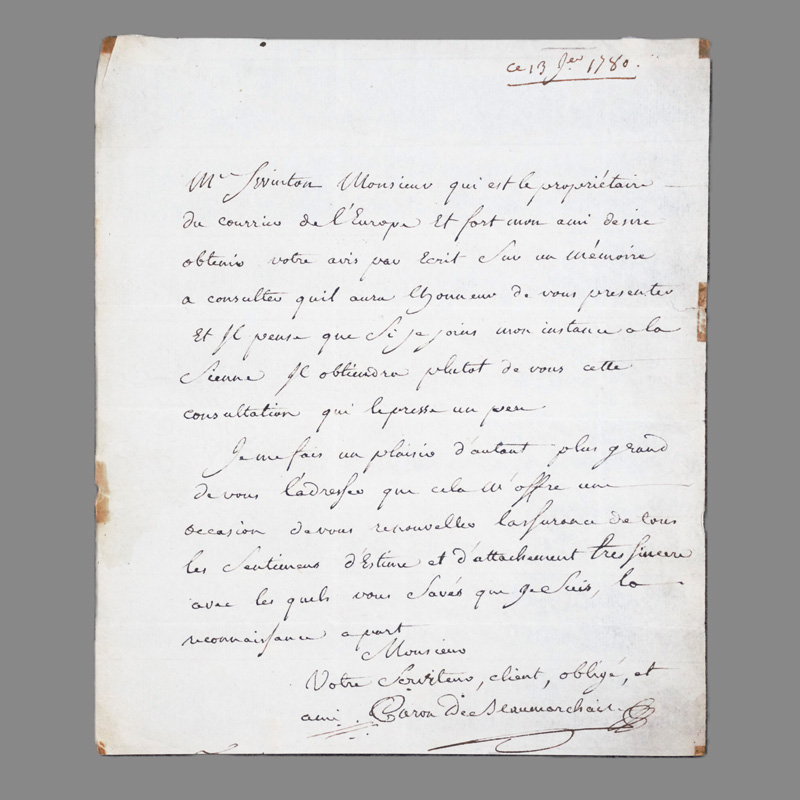 ce 13 Jer 1780.
Mr Swinton Monsieur qui est le propriétaire
du courrier de l'Europe Et fort mon ami desire
obtenir votre avis par Ecrit Sur un Mémoire
a consulter quil aura lhonneur de vous presenter
Et Il pense que Si je joins mon instance a la
Sienne Il obtiendra plutot de vous cette
consultation qui le presse un peu
Je me fais un plaisir d'autant plus grand
de vous l'adresser que cela M'offre une
occasion de vous renouveller lassurance de tous
les Sentimens d'Estime et d'attachement tres sincere
avec les quels vous Savés que je Suis, la
reconnaissance a part
Monsieur
Votre Serviteur, client, obligé, et
ami Caron De Beaumarchais